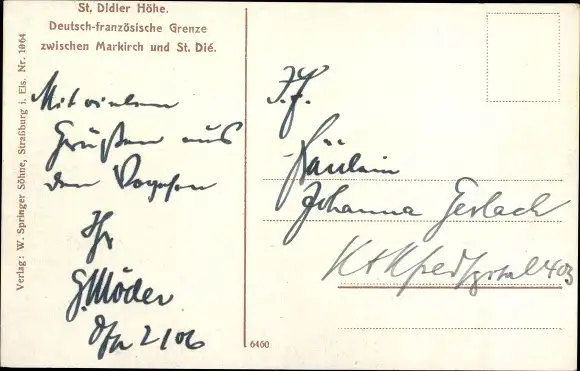 St. Didler Höhe.
Deutsch-französische Grenze
zwischen Markirch und St. Dié.
Verlag: W. Springer Söhne, Straßburg i. Els. Nr. 1064
Mit vielen
Grüßen aus
den Vogesen
Ihr
G. Möder
Fräulein
Johanna Gerlach
6460